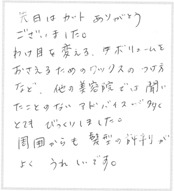 先日はカットありがとう
ございました。
わけ目を変える、ボリュームを
おさえるためのワックスのつけ方
など、他の美容院では聞い
たことのないアドバイスが多く
とてもびっくりしました。
周囲からも髪型の評判が
よく うれしいです。